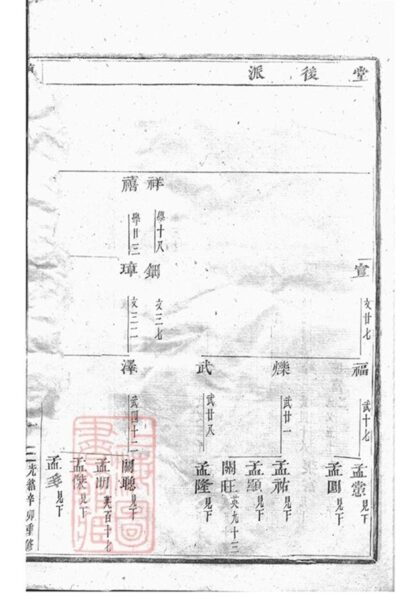 堂後派
宣 文廿七
福 武十七
孟憲 見下
孟圓 見下
爍 武廿一
孟祐 見下
孟顯 見下
關旺 英九十三
武 武廿八
孟隆 見下
祥 學十八
鈿 文三七
禧 學廿三
璋 文三二
澤 武四十二
關聰 見下
孟明 英百十七
見下
見下
光緒辛卯重修